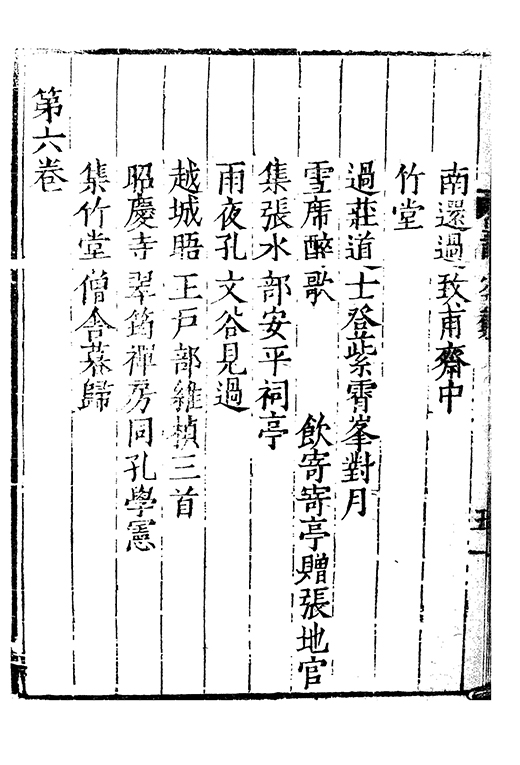 南還過致甫齋中
竹堂
過莊道士登紫霄峯對月
雪席醉歌　飲寄寄亭贈張地官
集張水部安平祠亭
雨夜孔文谷見過
越城晤王戶部維楨三首
昭慶寺翠筠禪房同孔學憲
集竹堂僧舍暮歸
第六卷